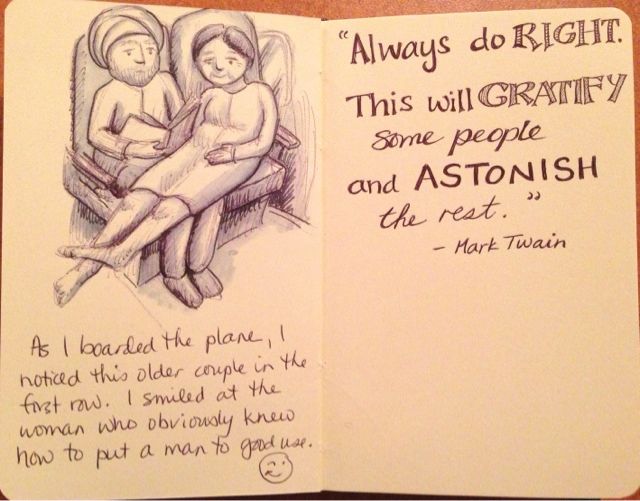 As I boarded the plane, I
noticed this older couple in the
first row. I smiled at the
woman who obviously knew
how to put a man to good use.
"Always do RIGHT.
This will GRATIFY
some people
and ASTONISH
the rest."
- Mark Twain